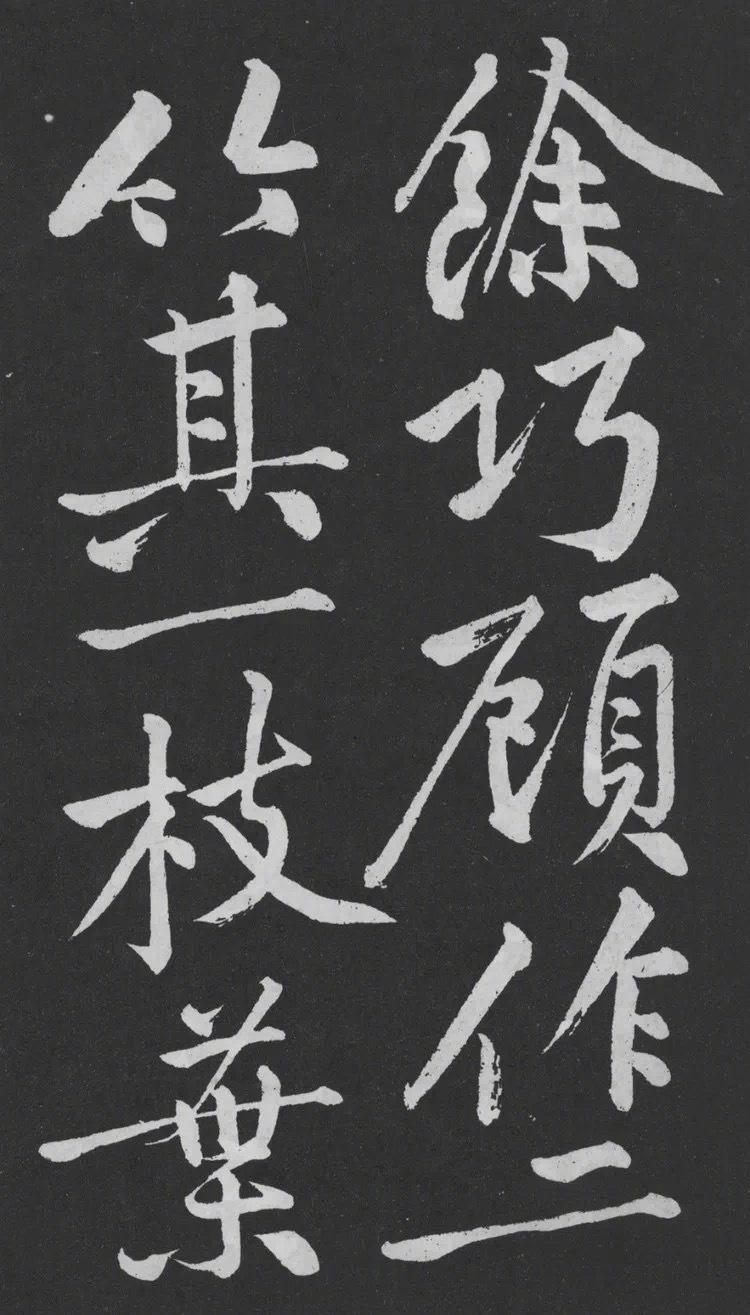 餘巧顧作二
竹其一枝葉